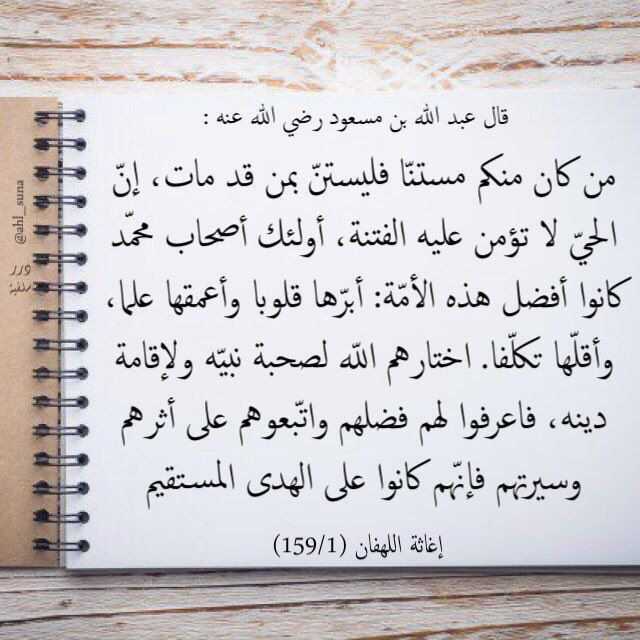 قال عبد الله بن مسعود رضي الله عنه :
من كان منكم مستنّا فليستنّ بمن قد مات، إنّ
الحيّ لا تؤمن عليه الفتنة، أولئك أصحاب محمّد
كانوا أفضل هذه الأمّة: أبرّها قلوبا وأعمقها علما،
وأقلّها تكلّفا. اختارهم اللّه لصحبة نبيّه ولإقامة
دينه، فاعرفوا لهم فضلهم واتّبعوهم على أثرهم
وسيرتهم فإنّهم كانوا على الهدى المستقيم
إغاثة اللهفان (159/1)
@ahl_suna